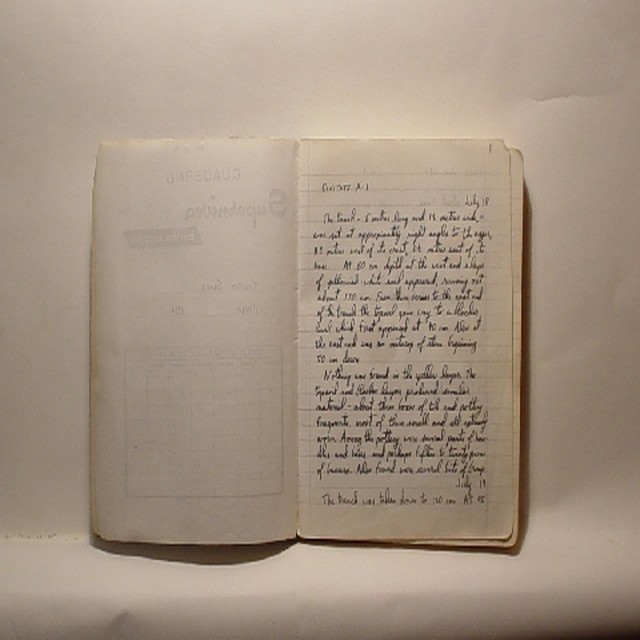 CUADERNO
Supernidea
1
Civitate A-1
July 18
The trench - 5 meters long and 1½ meters wide -
was set at approximately right angles to the agger,
meters west of its crest, meters east of its
base. At 50 cm depth at the west end a layer
of yellowish white soil appeared, running out
about 170 cm. From there across to the east end
of the trench the topsoil gave way to a blacker
level which first appeared at 40 cm. Also at
the east end was an outcrop of stone beginning
50 cm down.
Nothing was found in the yellow layer. The
topsoil and blacker layers produced similar
material - about three boxes of tile and pottery
fragments, most of them small and all
worn. Among the pottery were several parts of
and bases, and perhaps fifteen to twenty pieces
of bucchero. Also found were several bits of
July 19
The trench was taken down to 70 cm. At 55